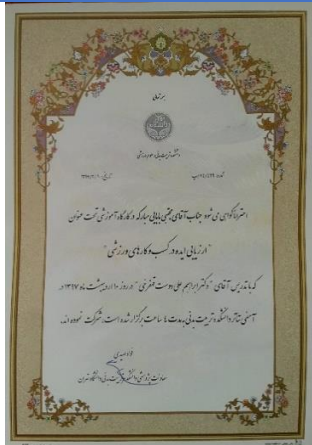 بسمه تعالی
دانشکده تربیت بدنی و علوم ورزشی
احتراماً گواهی می شود جناب آقای مجتبی بابایی مبارکه در کارگاه آموزشی تحت عنوان
"ارزیابی ایده در کسب و کارهای ورزشی"
که با تدریس آقای "دکتر ابراهیم علی دوست قهفرخی" در روز ۱۰ اردیبهشت ماه ۱۳۹۷ در
آمفی تئاتر دانشکده تربیت بدنی به مدت ساعت برگزار شده است، شرکت نموده اند.
معاونت پژوهشی دانشکده تربیت بدنی دانشگاه تهران